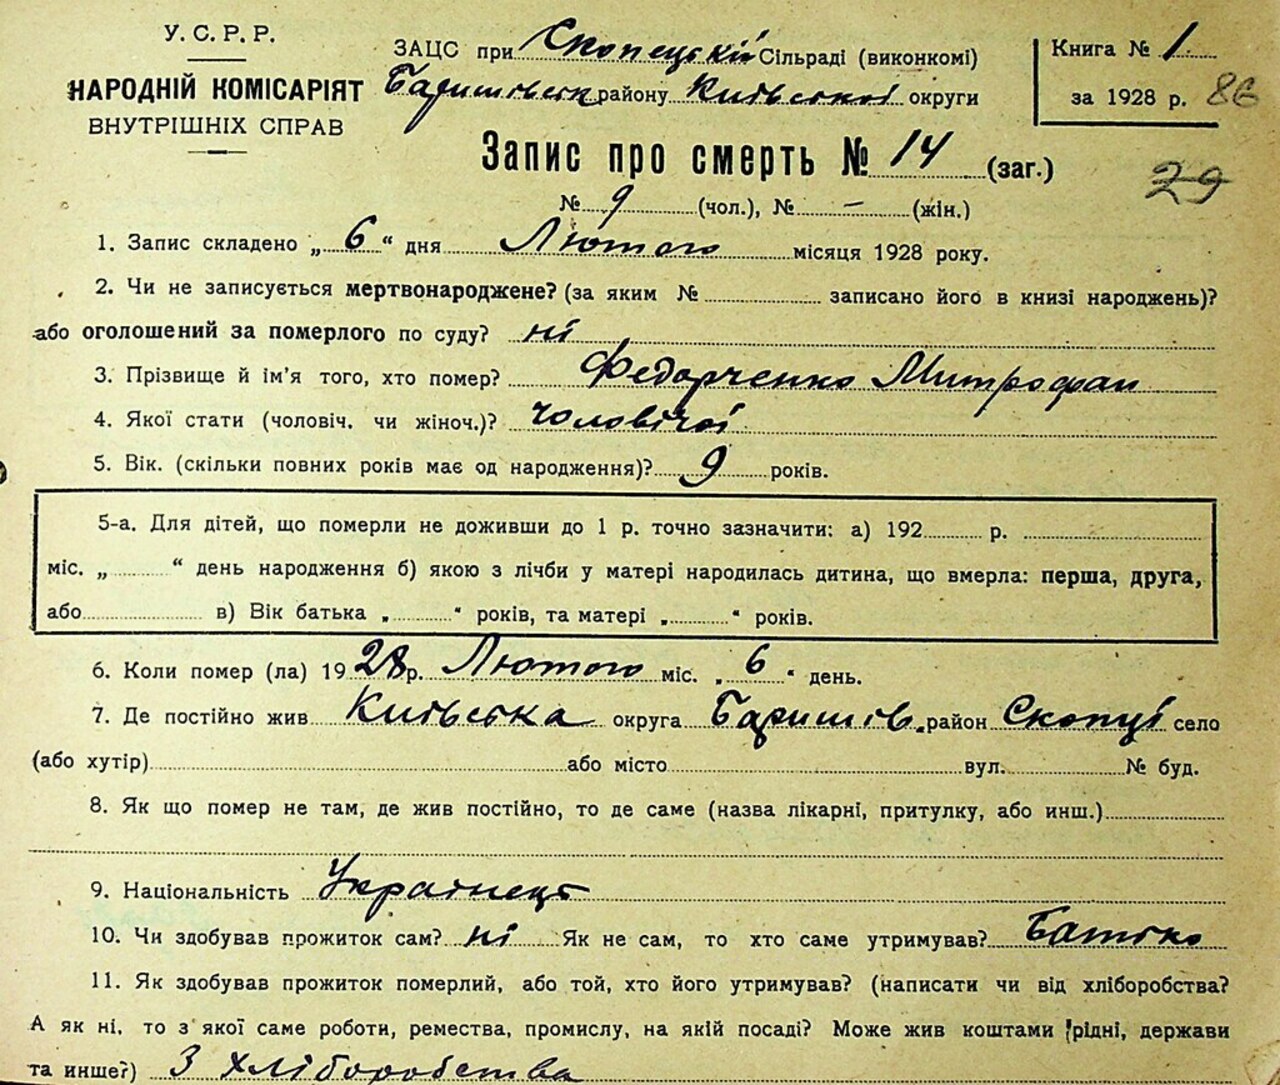 У. С. Р. Р.
НАРОДНІЙ КОМІСАРІЯТ
ВНУТРІШНІХ СПРАВ
ЗАЦС при Скопецькій Сільраді (виконкомі)
Баришівськ району Київської округи
Книга № 1
за 1928 р. 86
Запис про смерть № 14 (заг.)
29
№ 9 (чол.), № – (жін.)
1. Запис складено „ 6 “ дня Лютого місяця 1928 року.
2. Чи не записується мертвонароджене? (за яким № записано його в книзі народжень)?
або оголошений за померлого по суду? ні
3. Прізвище й ім'я того, хто помер? Федорченко Митрофан
4. Якої стати (чоловіч. чи жіноч.)? чоловічої
5. Вік. (скільки повних років має од народження)? 9 років.
5-а. Для дітей, що померли не доживши до 1 р. точно зазначити: а) 192 р.
міс. „ “ день народження б) якою з лічби у матері народилась дитина, що вмерла: перша, друга,
або в) Вік батька „ “ років, та матері „ “ років.
6. Коли помер (ла) 1928 р. Лютого міс. „ 6 “ день.
7. Де постійно жив Київська округа Баришів. район Скопці село
(або хутір) або місто вул. № буд.
8. Як що помер не там, де жив постійно, то де саме (назва лікарні, притулку, або инш.)
9. Національність Українець
10. Чи здобував прожиток сам? ні Як не сам, то хто саме утримував? Батько
11. Як здобував прожиток померлий, або той, хто його утримував? (написати чи від хліборобства?
А як ні, то з якої саме роботи, ремества, промислу, на якій посаді? Може жив коштами рідні, держави
та инше?) З хліборобства